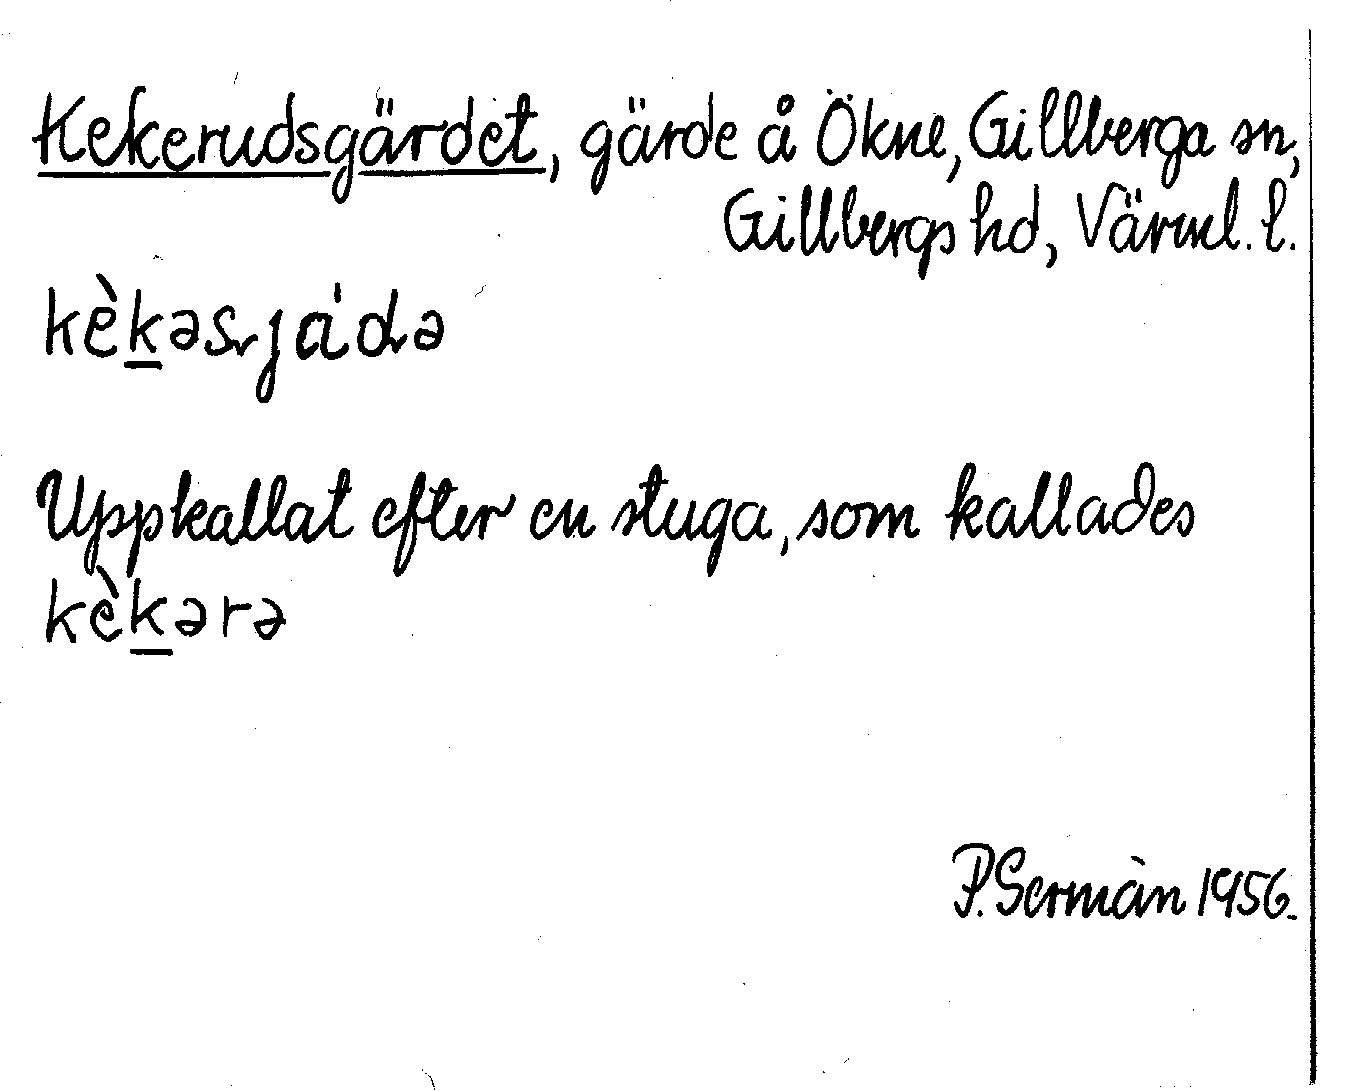 Kekerudsgärdet, gärde å Ökne, Gillberga sn,
Gillbergs hd, Värml. l.
kèk̲əsjádə
Uppkallat efter en stuga, som kallades
kèk̲ərə
P. Sermàn 1956.